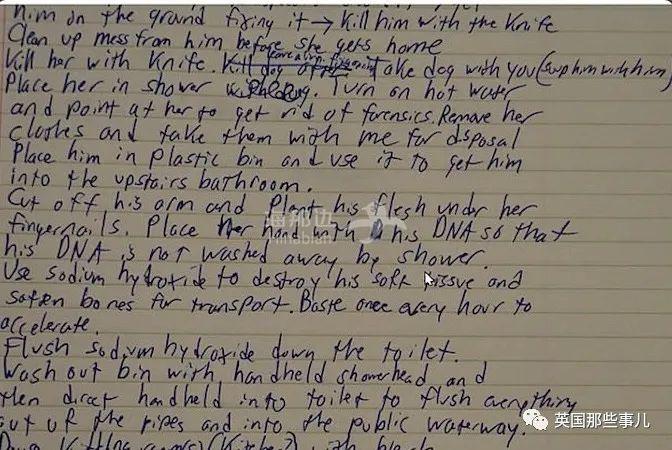 him on the ground fixing it → Kill him with the Knife
Clean up mess from him before she gets home
Kill her with Knife. Take dog with you
Place her in shower. Turn on hot water
and point at her to get rid of forensics. Remove her
clothes and take them with me for disposal
Place him in plastic bin and use it to get him
into the upstairs bathroom.
Cut off his arm and Plant his flesh under her
fingernails. Place her hand with his DNA so that
his DNA is not washed away by shower.
Use sodium hydroxide to destroy his soft tissue and
soften bones for transport. Baste once every hour to
accelerate.
Flush sodium hydroxide down the toilet.
Wash out bin with handheld showerhead and
then direct handheld into toilet to flush everything
out of the pipes and into the public waterway.
海那边
Hinabian
英国那些事儿